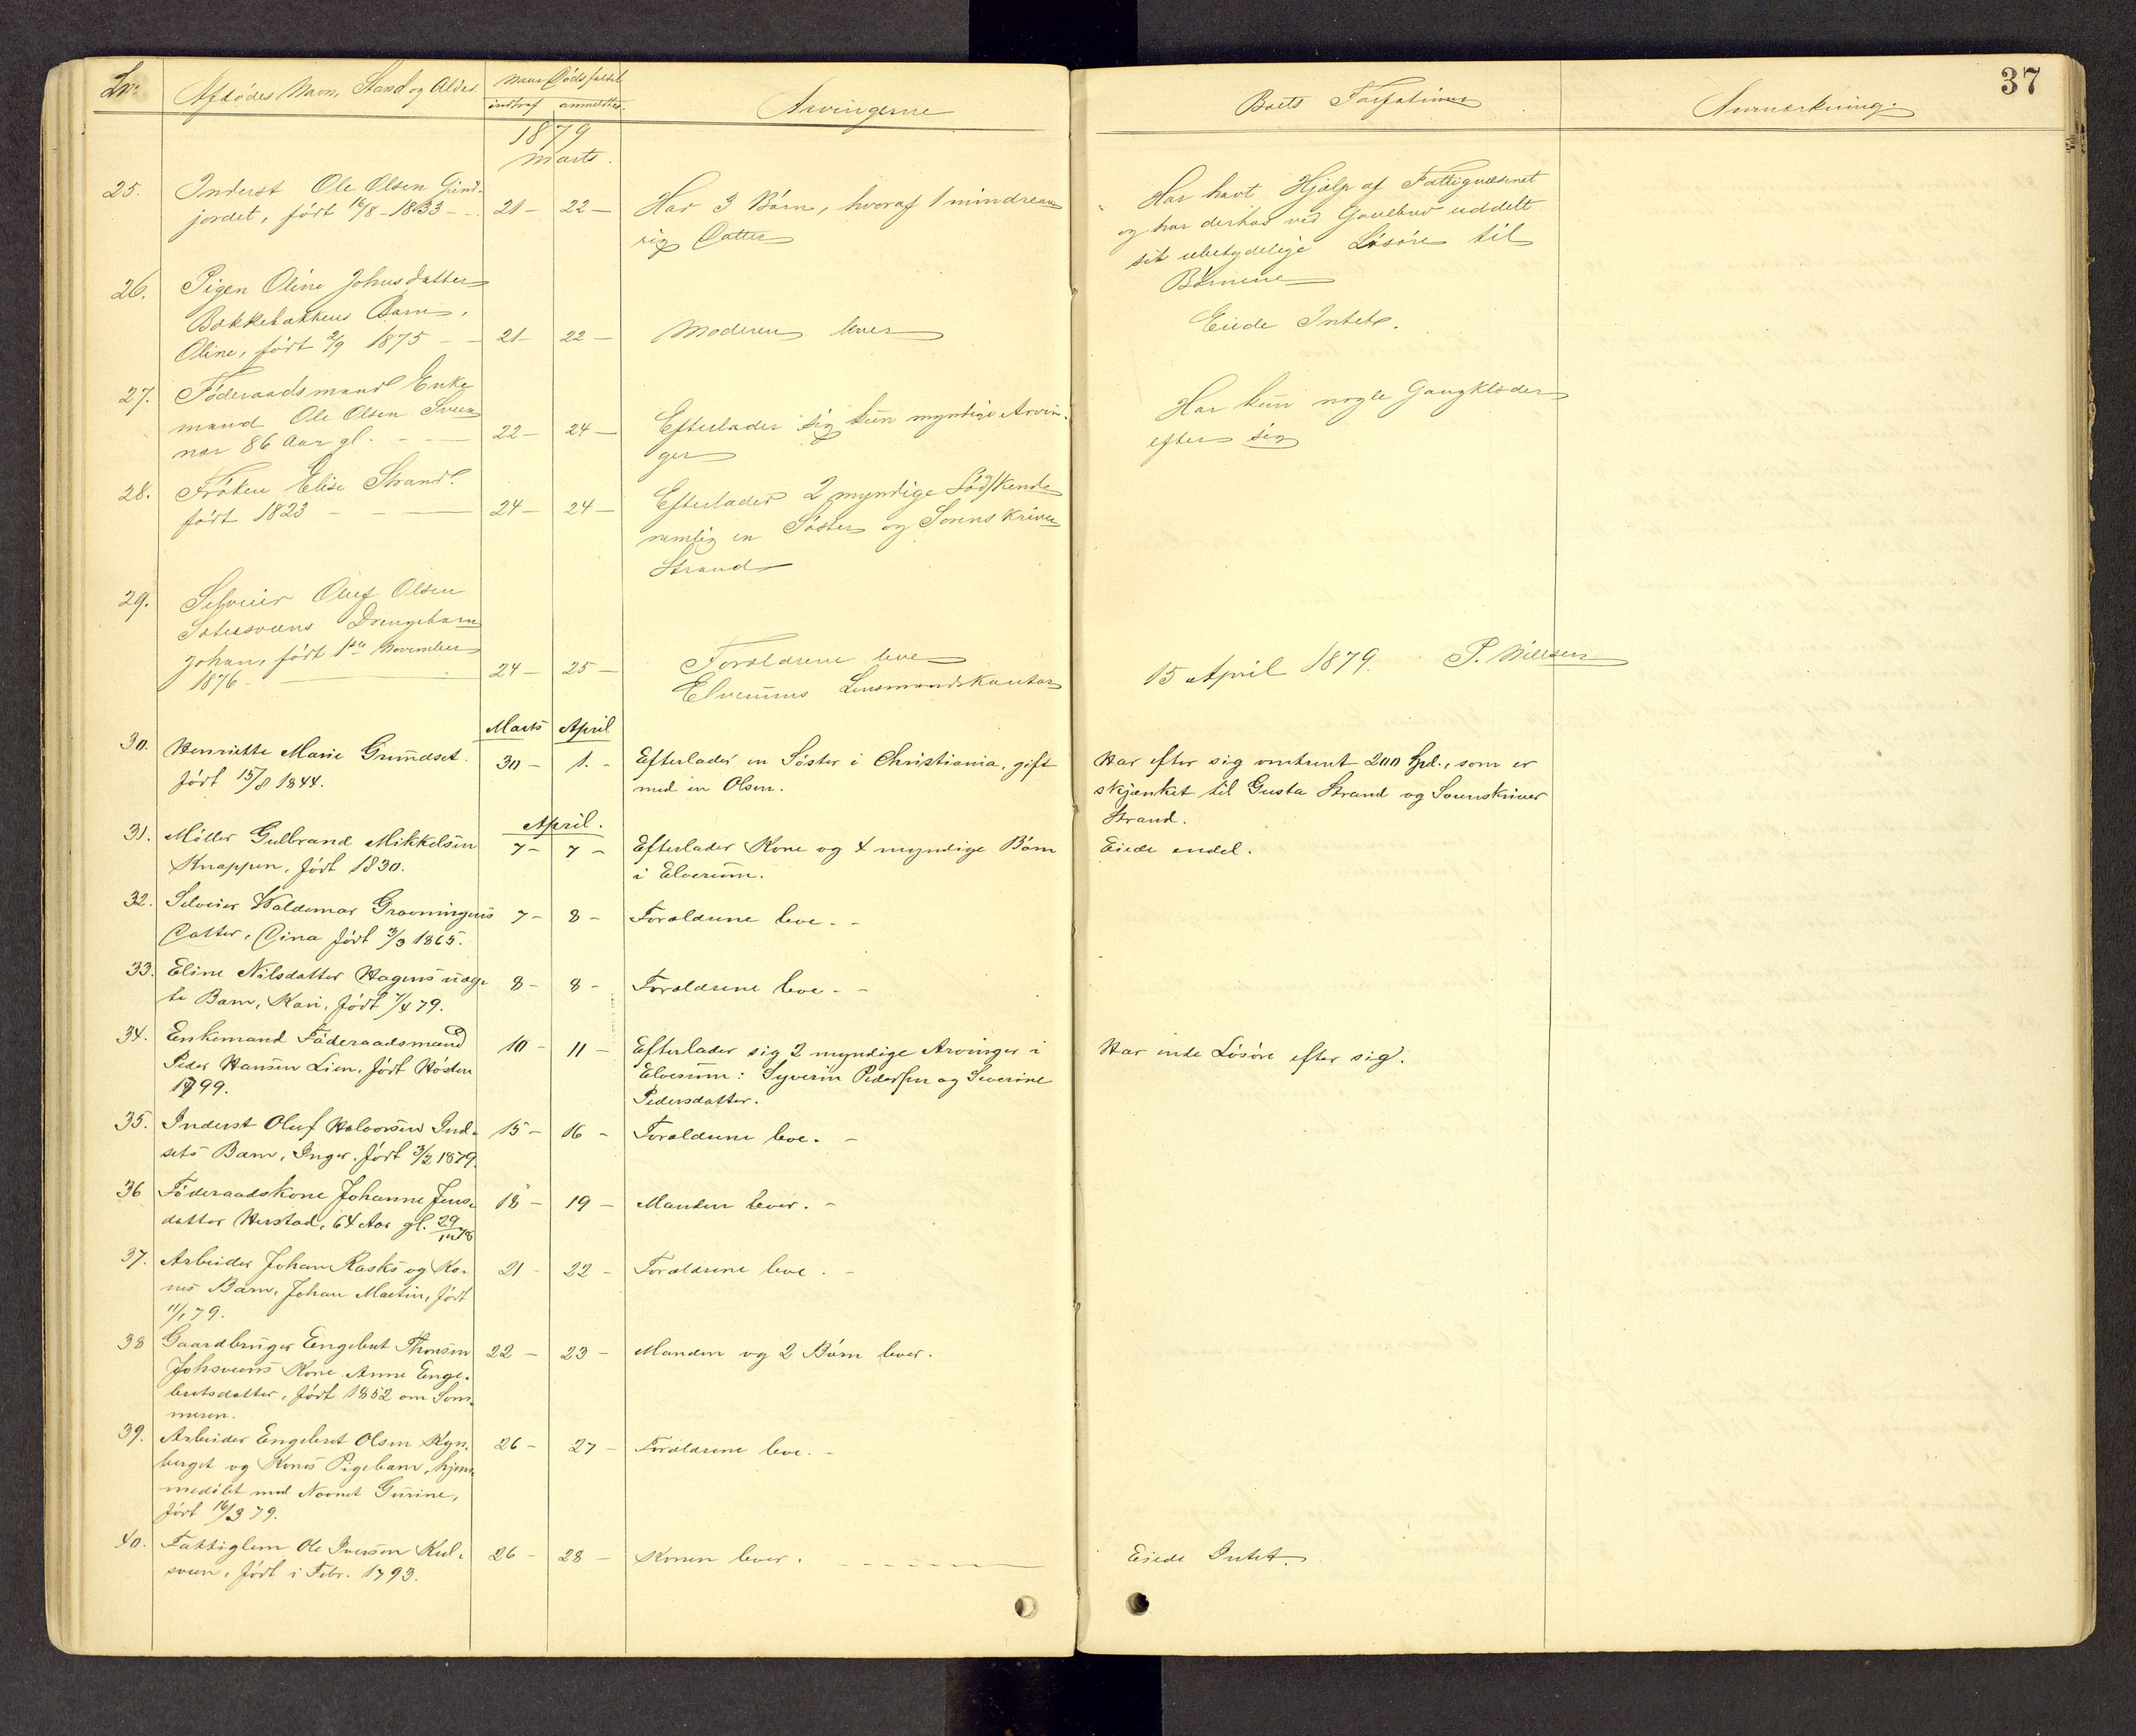 37
Lnr. Afdødes Navn, Stand og Alder. Naar Dødsfaldet Arvingerne Boets Forfatning Anmærkning.
indtraf anmeldtes
1879
Marts.
25. Inderst Ole Olsen Grind-
jordet, født 16/8 - 1833 - 21 - 22 - Har 3 Børn, hvoraf 1 mindreaa
rig Datter
Har havt Hjælp af Fattigvæsenet
og har derhos ved Gavebrev uddelt
sit ubetydelige Løsøre til
Børnene
26. Pigen Oline Johnsdatter
Bækkebakkens Barn,
Oline, født 2/9 1875 - - 21 - 22 - Moderen lever Eiede Intet.
27. Føderaadsmand Enke
mand Ole Olsen Sveen
nær 86 Aar gl. - - 22 - 24 - Efterlader sig kun myndige Arvin-
ger
Har kun nogle Gangklæder
efter sig
28. Frøken Elise Strand
født 1823 - - - 24 - 24 - Efterlader 2 myndige Sødskende
nemlig en Søster og Sorenskriver
Strand
29. Selveier Oluf Olsen
Sætersveens Drengebarn
Johan, født 1ste November
1876 - 24 - 25 - Forældrene leve
Elverums Lensmandskontor 15 April 1879. P. Nielsen
Marts April
30. Henriette Marie Grundset. 30 - 1. - Efterlader en Søster i Christiania, gift
født 15/8 1844. med en Olsen.
Har efter sig omtrent 200 Spd., som er
skjænket til Gusta Strand og Sorenskriver
Strand.
April.
31. Møller Gulbrand Mikkelsen 7 - 7 - Efterlader Kone og 4 myndige Børn Eiede endel.
Knappen, født 1830. i Elverum.
32. Selveier Waldemar Gravningens 7 - 8 - Forældrene leve. -
Datter, Dina født 3/3 1865.
33. Eline Nilsdatter Hagens uæg- 8 - 8 - Forældrene leve. -
te Barn, Kari, født 7/4 79.
34. Enkemand Føderaadsmand 10 - 11 - Efterlader sig 2 myndige Arvinger i Har inde Løsøre efter sig.
Peder Hansen Lien, født Høsten Elverum: Syverin Pedersen og Severine
1799. Pedersdatter.
35. Inderst Oluf Halvorsen Ind- 15 - 16 - Forældrene leve. -
sets Barn, Inger, født 3/2 1879.
36 Føderaadskone Johanne Jens- 18 - 19 - Manden lever. -
datter Herstad, 64 Aar gl. 29/10 78
37. Arbeider Johan Rasks og Ko- 21 - 22 - Forældrene leve. -
nes Barn, Johan Martin, født
11/1 79.
38 Gaardbruger Engebret Thorsen 22 - 23 - Manden og 2 Børn lever.
Johsveens Kone Anne Enge-
bretsdatter, født 1852 om Som-
meren.
39. Arbeider Engebret Olsen Ryn- 26 - 27 - Forældrene leve. -
berget og Kones Pigebarn, hjem-
medøbt med Navnet Gurine,
født 16/3 79.
40. Fattiglem Ole Iversen Kul- 26 - 28 - Konen lever. - Eiede Intet.
sveen, født i Febr. 1793.